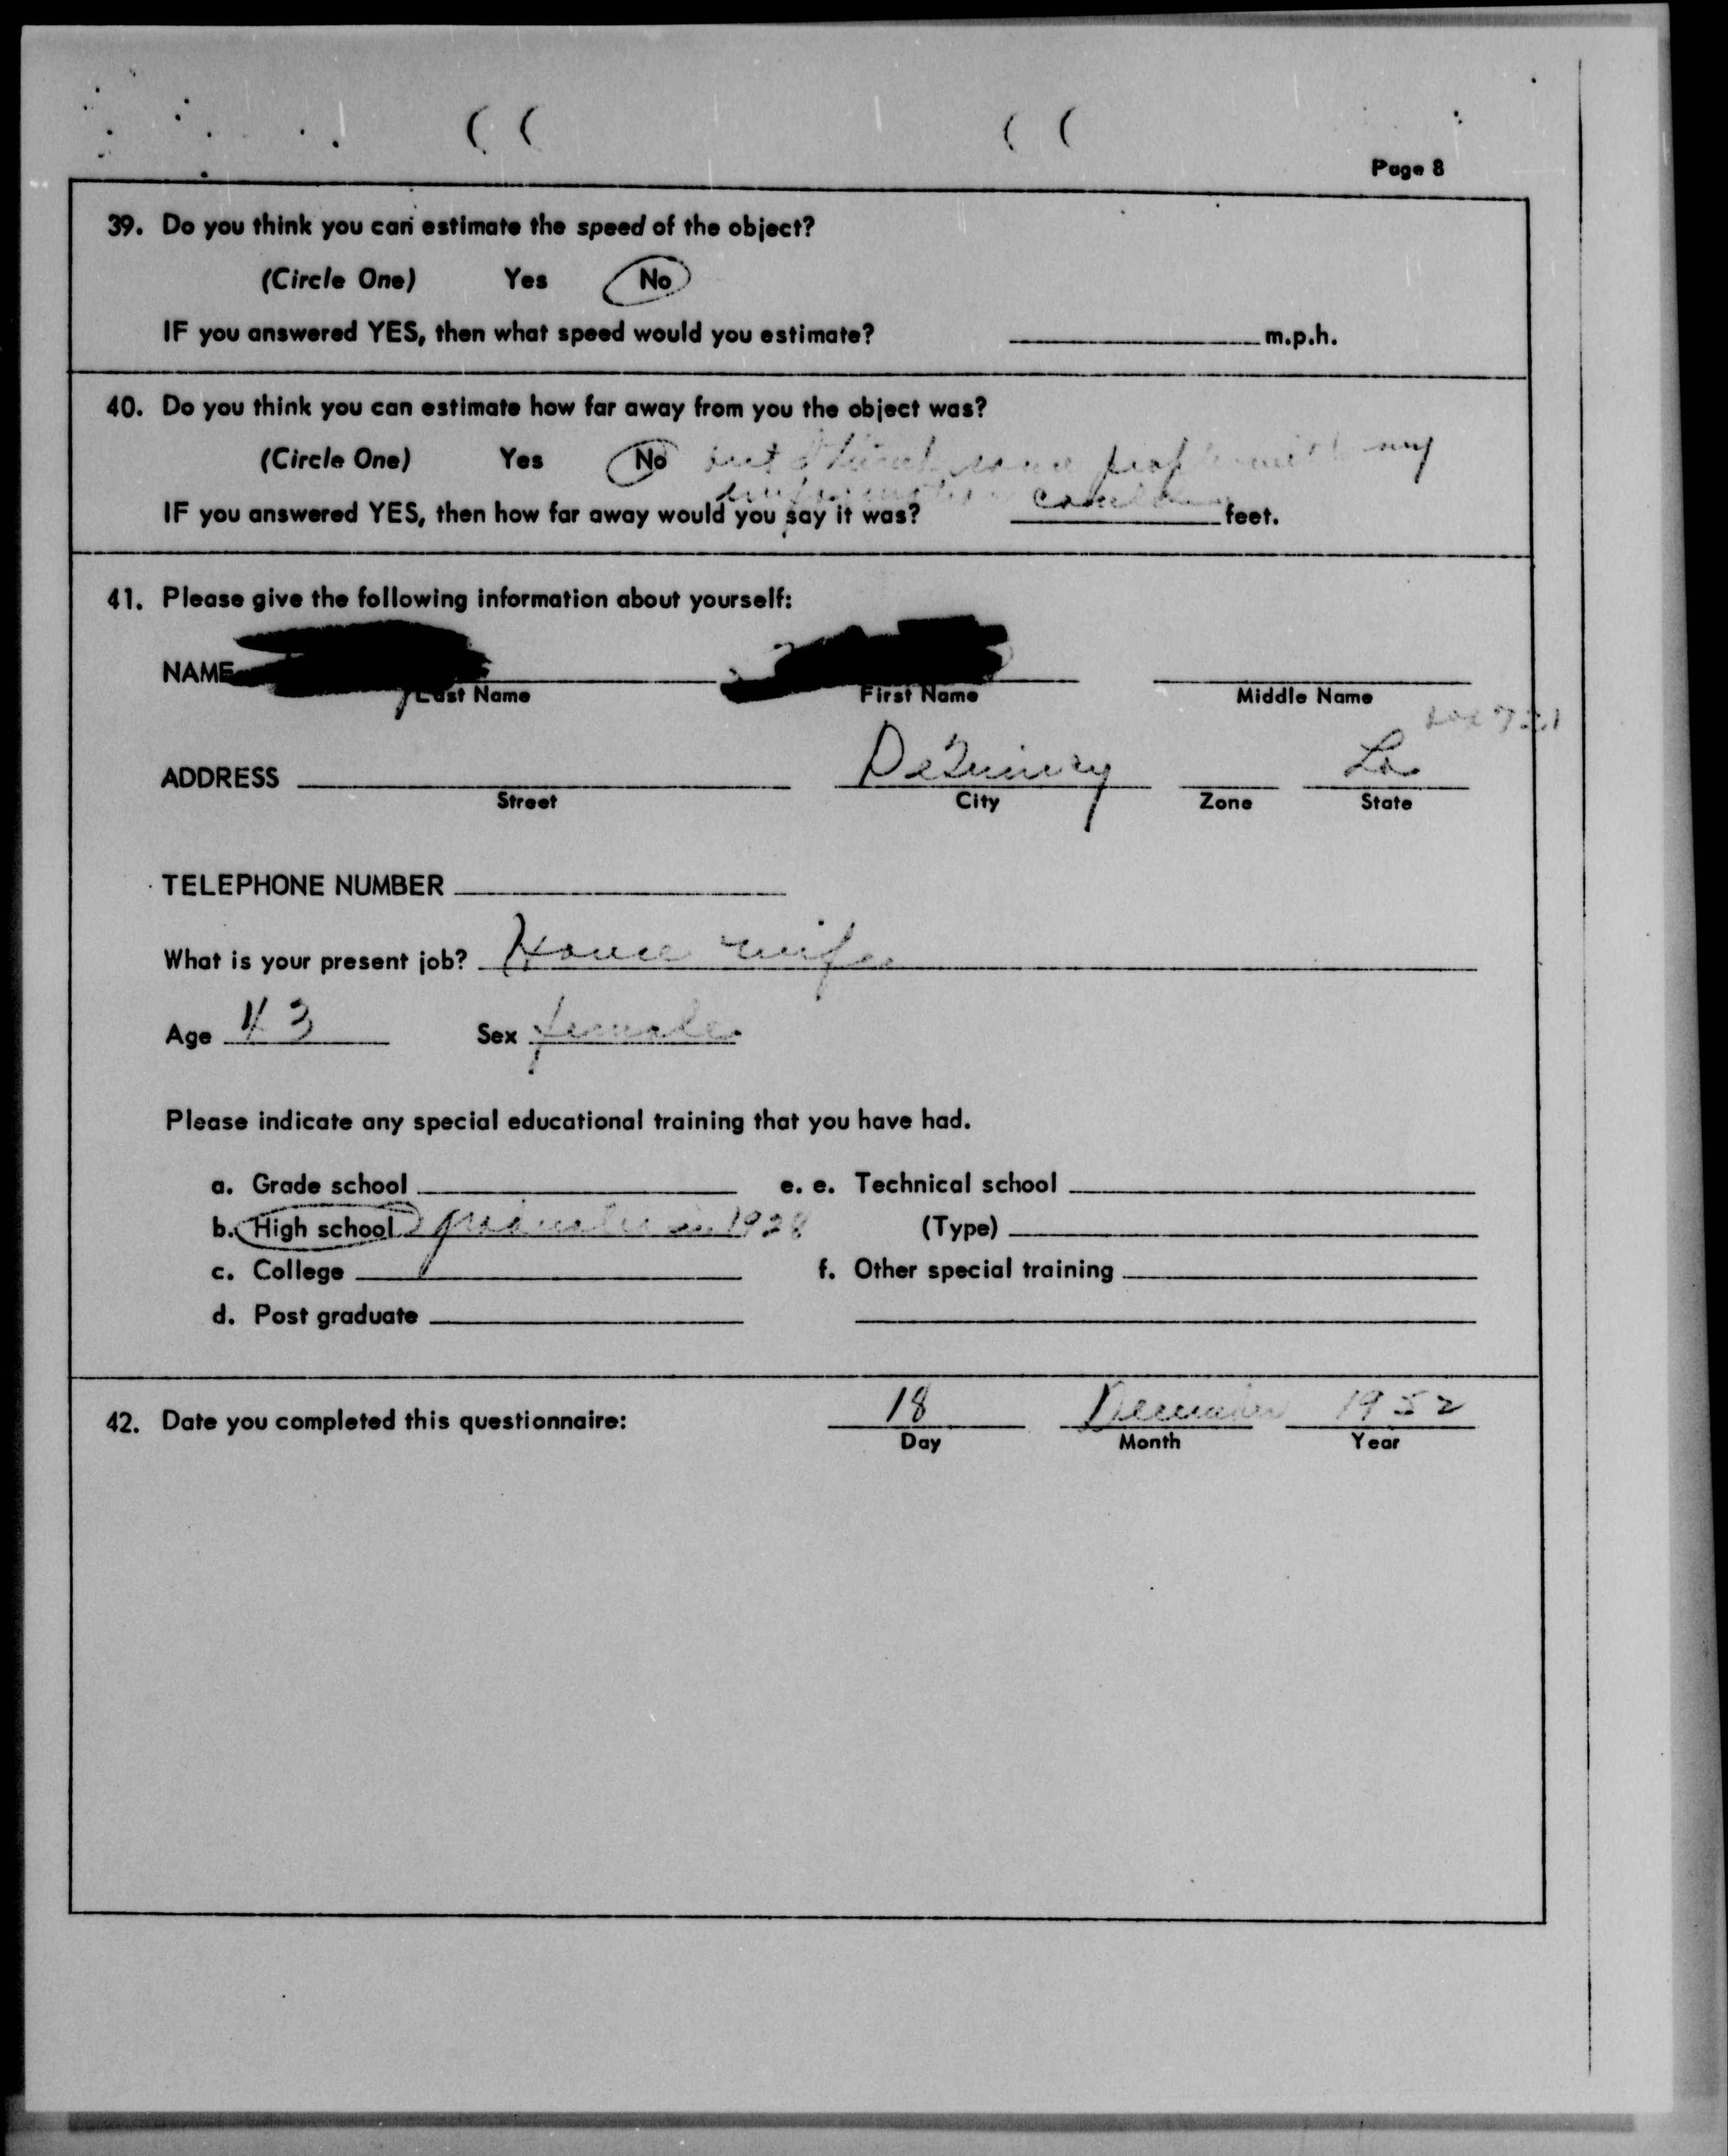 Page 8
39. Do you think you can estimate the speed of the object?
(Circle One) Yes No
IF you answered YES, then what speed would you estimate? m.p.h.
40. Do you think you can estimate how far away from you the object was?
(Circle One) Yes No but I think some people with my
information could
IF you answered YES, then how far away would you say it was? feet.
41. Please give the following information about yourself:
NAME
Last Name First Name Middle Name
Box 721
ADDRESS DeQuincy La
Street City Zone State
TELEPHONE NUMBER
What is your present job? House wife
Age 43 Sex female
Please indicate any special educational training that you have had.
a. Grade school e. e. Technical school
b. High school graduated in 1928 (Type)
c. College f. Other special training
d. Post graduate
42. Date you completed this questionnaire: 18 December 1952
Day Month Year